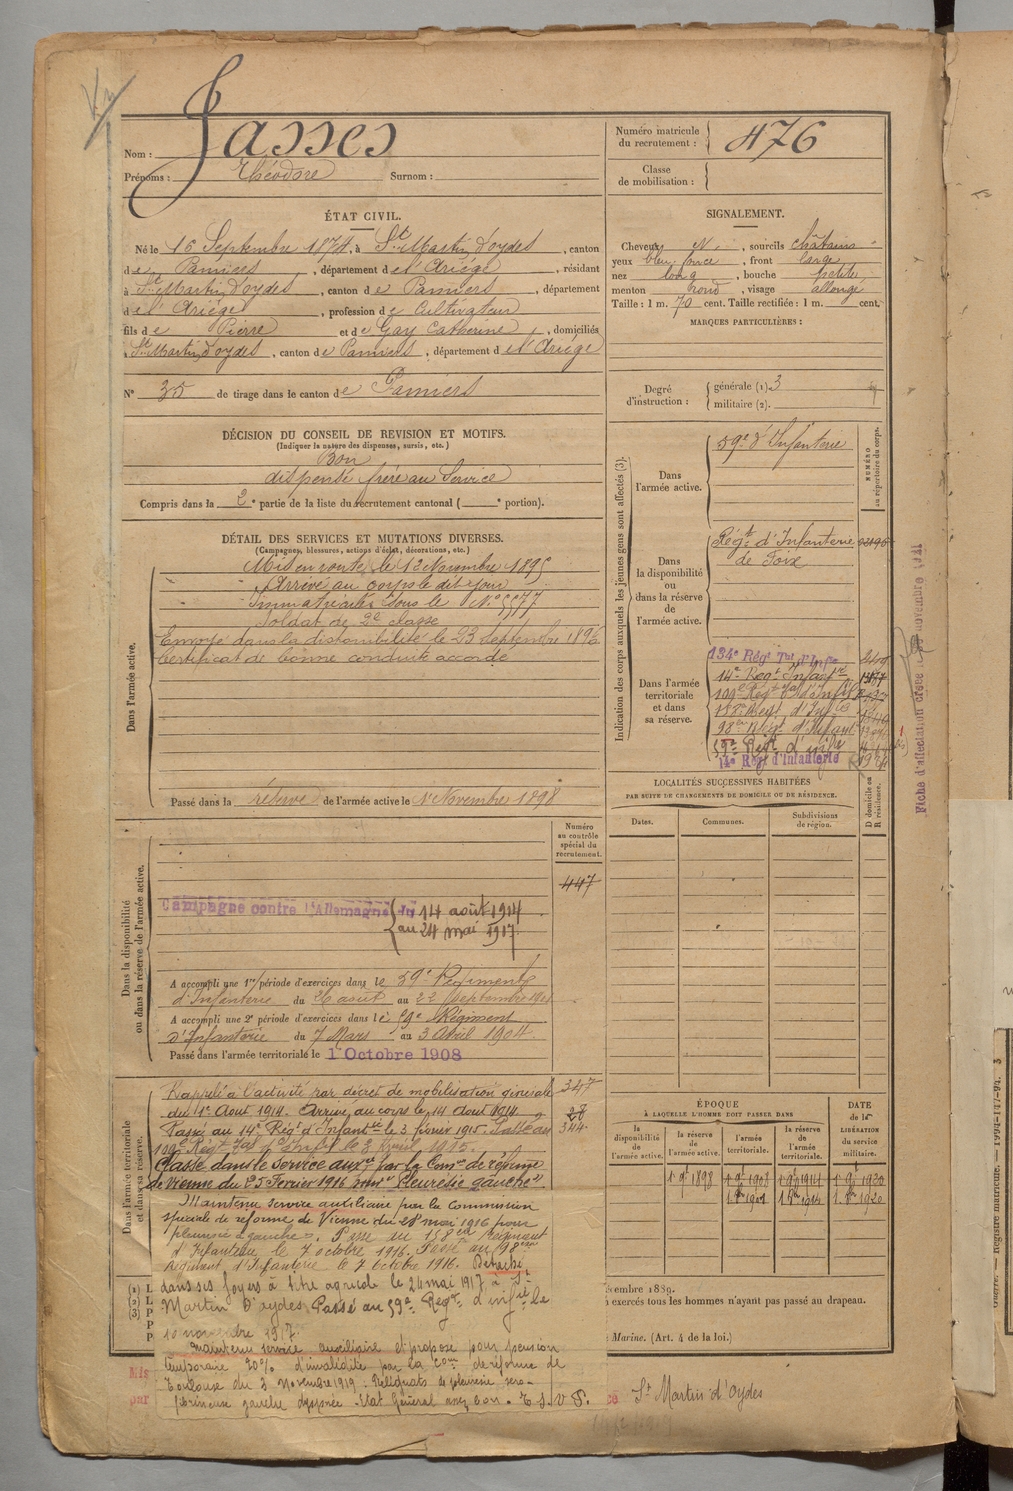 Nom : Jasses
Prénoms : Théodore Surnom :
Numéro matricule du recrutement : 476
Classe de mobilisation :
ÉTAT CIVIL.
Né le 16 Septembre 1874, à St Martin d'oydes, canton
de Pamiers, département de l'Ariége, résidant
à St Martin d'oydes, canton de Pamiers, département
de l'Ariége, profession de Cultivateur
fils de Pierre et de Gay Catherine, domiciliés
à St Martin d'oydes, canton de Pamiers, département de l'Ariége
N° 35 de tirage dans le canton de Pamiers
SIGNALEMENT.
Cheveux N., sourcils châtains
yeux bleu foncé, front large
nez long, bouche petite
menton rond, visage allongé
Taille : 1 m. 70 cent. Taille rectifiée : 1 m. cent.
MARQUES PARTICULIÈRES :
Degré d'instruction : générale (1). 3
militaire (2).
DÉCISION DU CONSEIL DE REVISION ET MOTIFS.
(Indiquer la nature des dispenses, sursis, etc.)
Bon
dispensé frère au Service
Compris dans la 2e partie de la liste du recrutement cantonal ( e portion).
DÉTAIL DES SERVICES ET MUTATIONS DIVERSES.
(Campagnes, blessures, actions d'éclat, décorations, etc.)
Dans l'armée active.
Mis en route le 13 Novembre 1895
Arrivé au corps le dit jour
Immatriculé sous le N° 5577
Soldat de 2e classe
Envoyé dans la disponibilité le 23 Septembre 1896
Certificat de bonne conduite accordé
Passé dans la réserve de l'armée active le 1er Novembre 1898
Indication des corps auxquels les jeunes gens sont affectés (3).
NUMÉRO au répertoire du corps.
Dans l'armée active.
59e d'Infanterie
Dans la disponibilité ou dans la réserve de l'armée active.
Régt d'Infanterie
de Foix
Dans l'armée territoriale et dans sa réserve.
134e Régt Tal d'Infie
14e Regt Infanie
109e Regt Tal d'infie
158e Regt d'Infie
98e Regt d'Infanie
59e Regt d'infie
14e Régt d'Infanterie
LOCALITÉS SUCCESSIVES HABITÉES
PAR SUITE DE CHANGEMENTS DE DOMICILE OU DE RÉSIDENCE.
Dates. Communes. Subdivisions de région. D domicile ou R résidence.
Dans la disponibilité ou dans la réserve de l'armée active.
Numéro au contrôle spécial du recrutement.
447
Campagne contre l'Allemagne du 14 août 1914
au 24 mai 1917.
A accompli une 1re période d'exercices dans le 59e Régiment
d'Infanterie du 26 août au 22 septembre 1901
A accompli une 2e période d'exercices dans le 59e Régiment
d'Infanterie du 7 Mars au 3 Avril 1904
Passé dans l'armée territoriale le 1 Octobre 1908
Dans l'armée territoriale et dans sa réserve.
Rappelé à l'activité par décret de mobilisation générale 347
du 1er Aout 1914. Arrivé au corps le 14 Aout 1914
Passé au 14e Régt d'Infantie le 3 février 1915. Passé au 344
109e Régt Tal d'Infie le 3 Avril 1915.
Classé dans le service auxre par la Comon de réforme
de Vienne du 25 Fevrier 1916 pour "Pleurésie gauche"
Maintenu service auxiliaire par la Commission
spéciale de réforme de Vienne du 28 mai 1916 pour
pleurésie gauche. Passé au 158eme Régiment
d'Infanterie le 7 octobre 1916. Passé au 98eme
Régiment d'Infanterie le 7 octobre 1916. Détaché
dans ses foyers à titre agricole le 24 mai 1917 à St
Martin d'oydes Passé au 59e Regt d'infie le
10 novembre 1917.
Maintenu service auxiliaire et proposé pour pension
temporaire 20% d'invalidité par la Comon de réforme de
Toulouse du 3 Novembre 1919. Reliquats de pleurésie séro-
fibrineuse gauche dyspnée. Etat Général assez bon.
ÉPOQUE
À LAQUELLE L'HOMME DOIT PASSER DANS
la disponibilité de l'armée active.
la réserve de l'armée active.
l'armée territoriale.
la réserve de l'armée territoriale.
DATE de la LIBÉRATION du service militaire.
1 9bre 1898 1 9bre 1908 1 9bre 1914 1 9bre 1920
embre 1889.
à exercés tous les hommes n'ayant pas passé au drapeau.
Marine. (Art. 4 de la loi.)
Mis
par
St Martin d'Oydes